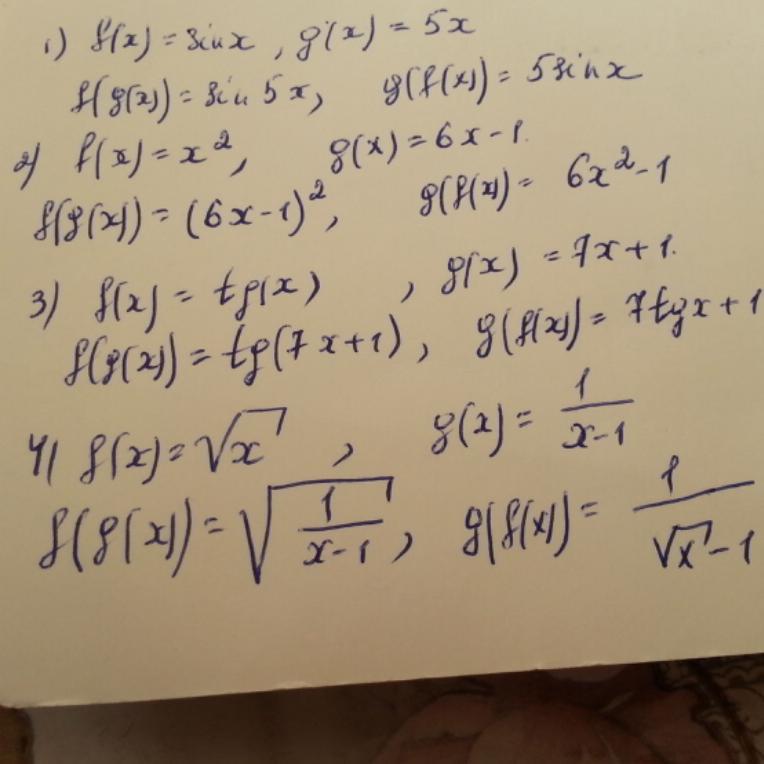 1) f(x) = sin x , g(x) = 5x
f(g(x)) = sin 5x, g(f(x)) = 5 sin x
2) f(x) = x², g(x) = 6x - 1.
f(g(x)) = (6x - 1)², g(f(x)) = 6x² - 1
3) f(x) = tg(x) , g(x) = 7x + 1.
f(g(x)) = tg(7x + 1), g(f(x)) = 7tgx + 1
4) f(x) = √x , g(x) = 1/(x-1)
f(g(x)) = √(1/(x-1)), g(f(x)) = 1/(√x - 1)